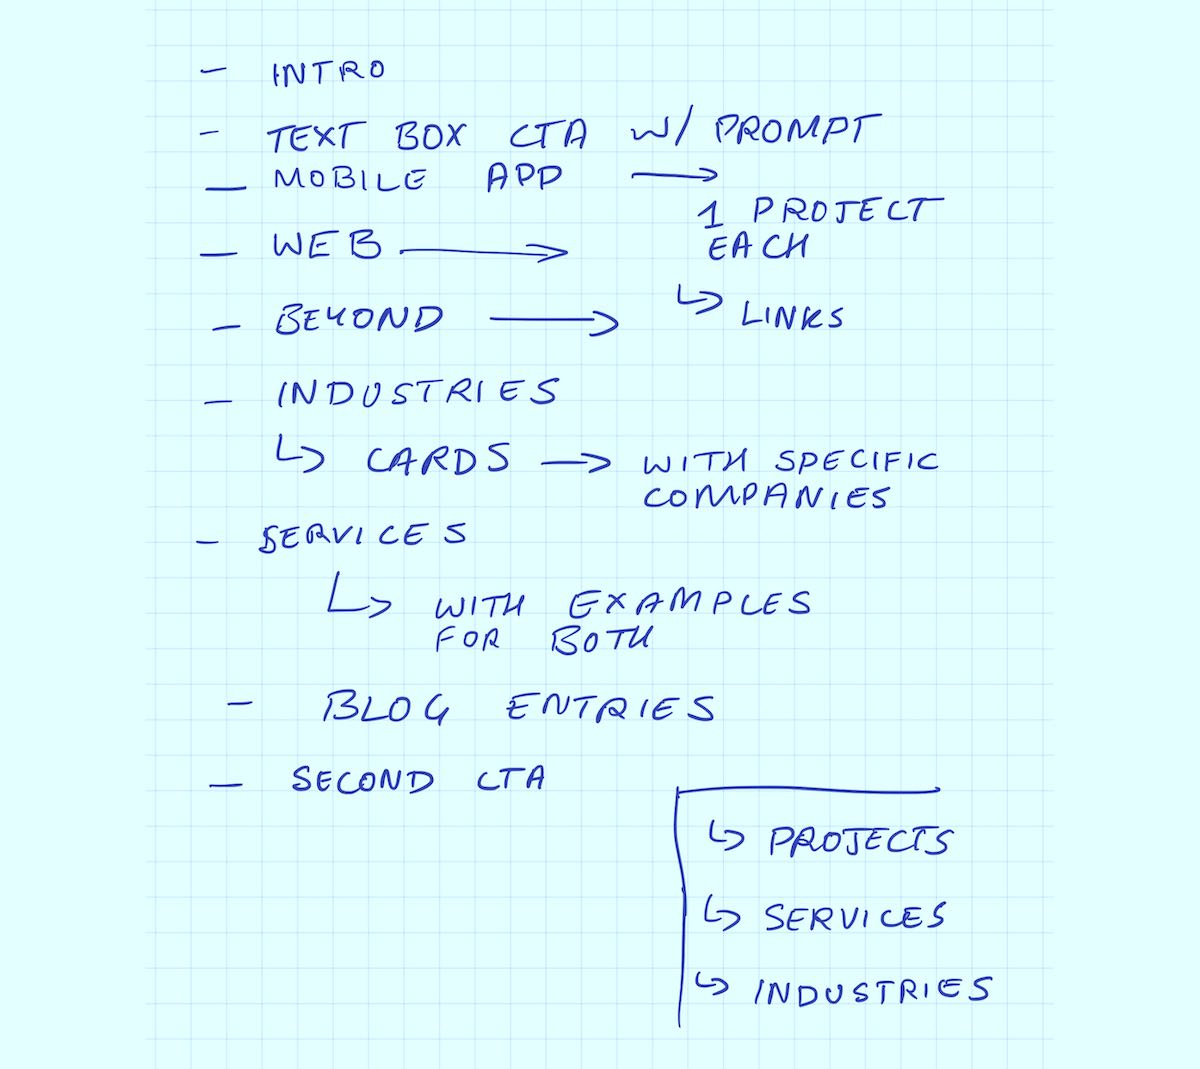 - INTRO
- TEXT BOX CTA W/ PROMPT
- MOBILE APP →
1 PROJECT
EACH
- WEB →
↳ LINKS
- BEYOND →
- INDUSTRIES
↳ CARDS → WITH SPECIFIC
COMPANIES
- SERVICES
↳ WITH EXAMPLES
FOR BOTH
- BLOG ENTRIES
- SECOND CTA
↳ PROJECTS
↳ SERVICES
↳ INDUSTRIES